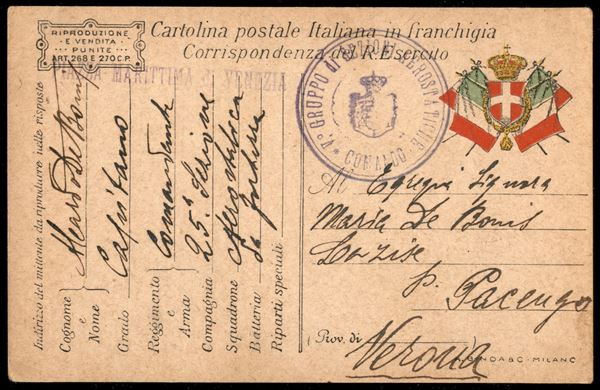 RIPRODUZIONE
E VENDITA
PUNITE
ART. 268 E 270 C.P.
Cartolina postale Italiana in franchigia
Corrispondenza del R. Esercito
MARITTIMA VENEZIA
V° GRUPPO DI SEZIONI AEROSTATICHE
COMANDO
Indirizzo del mittente da riprodurre nelle risposte
Cognome e Nome
De Bonis
Grado
Capitano
Reggimento e Arma
Comandante
Compagnia
25ª Sezione
Squadrone
Aerostatica
Batteria
da
Riparti speciali
Al Egregia Signora
Maria De Bonis
Lazise
p. Pacengo
(Prov. di
Verona
MILANO